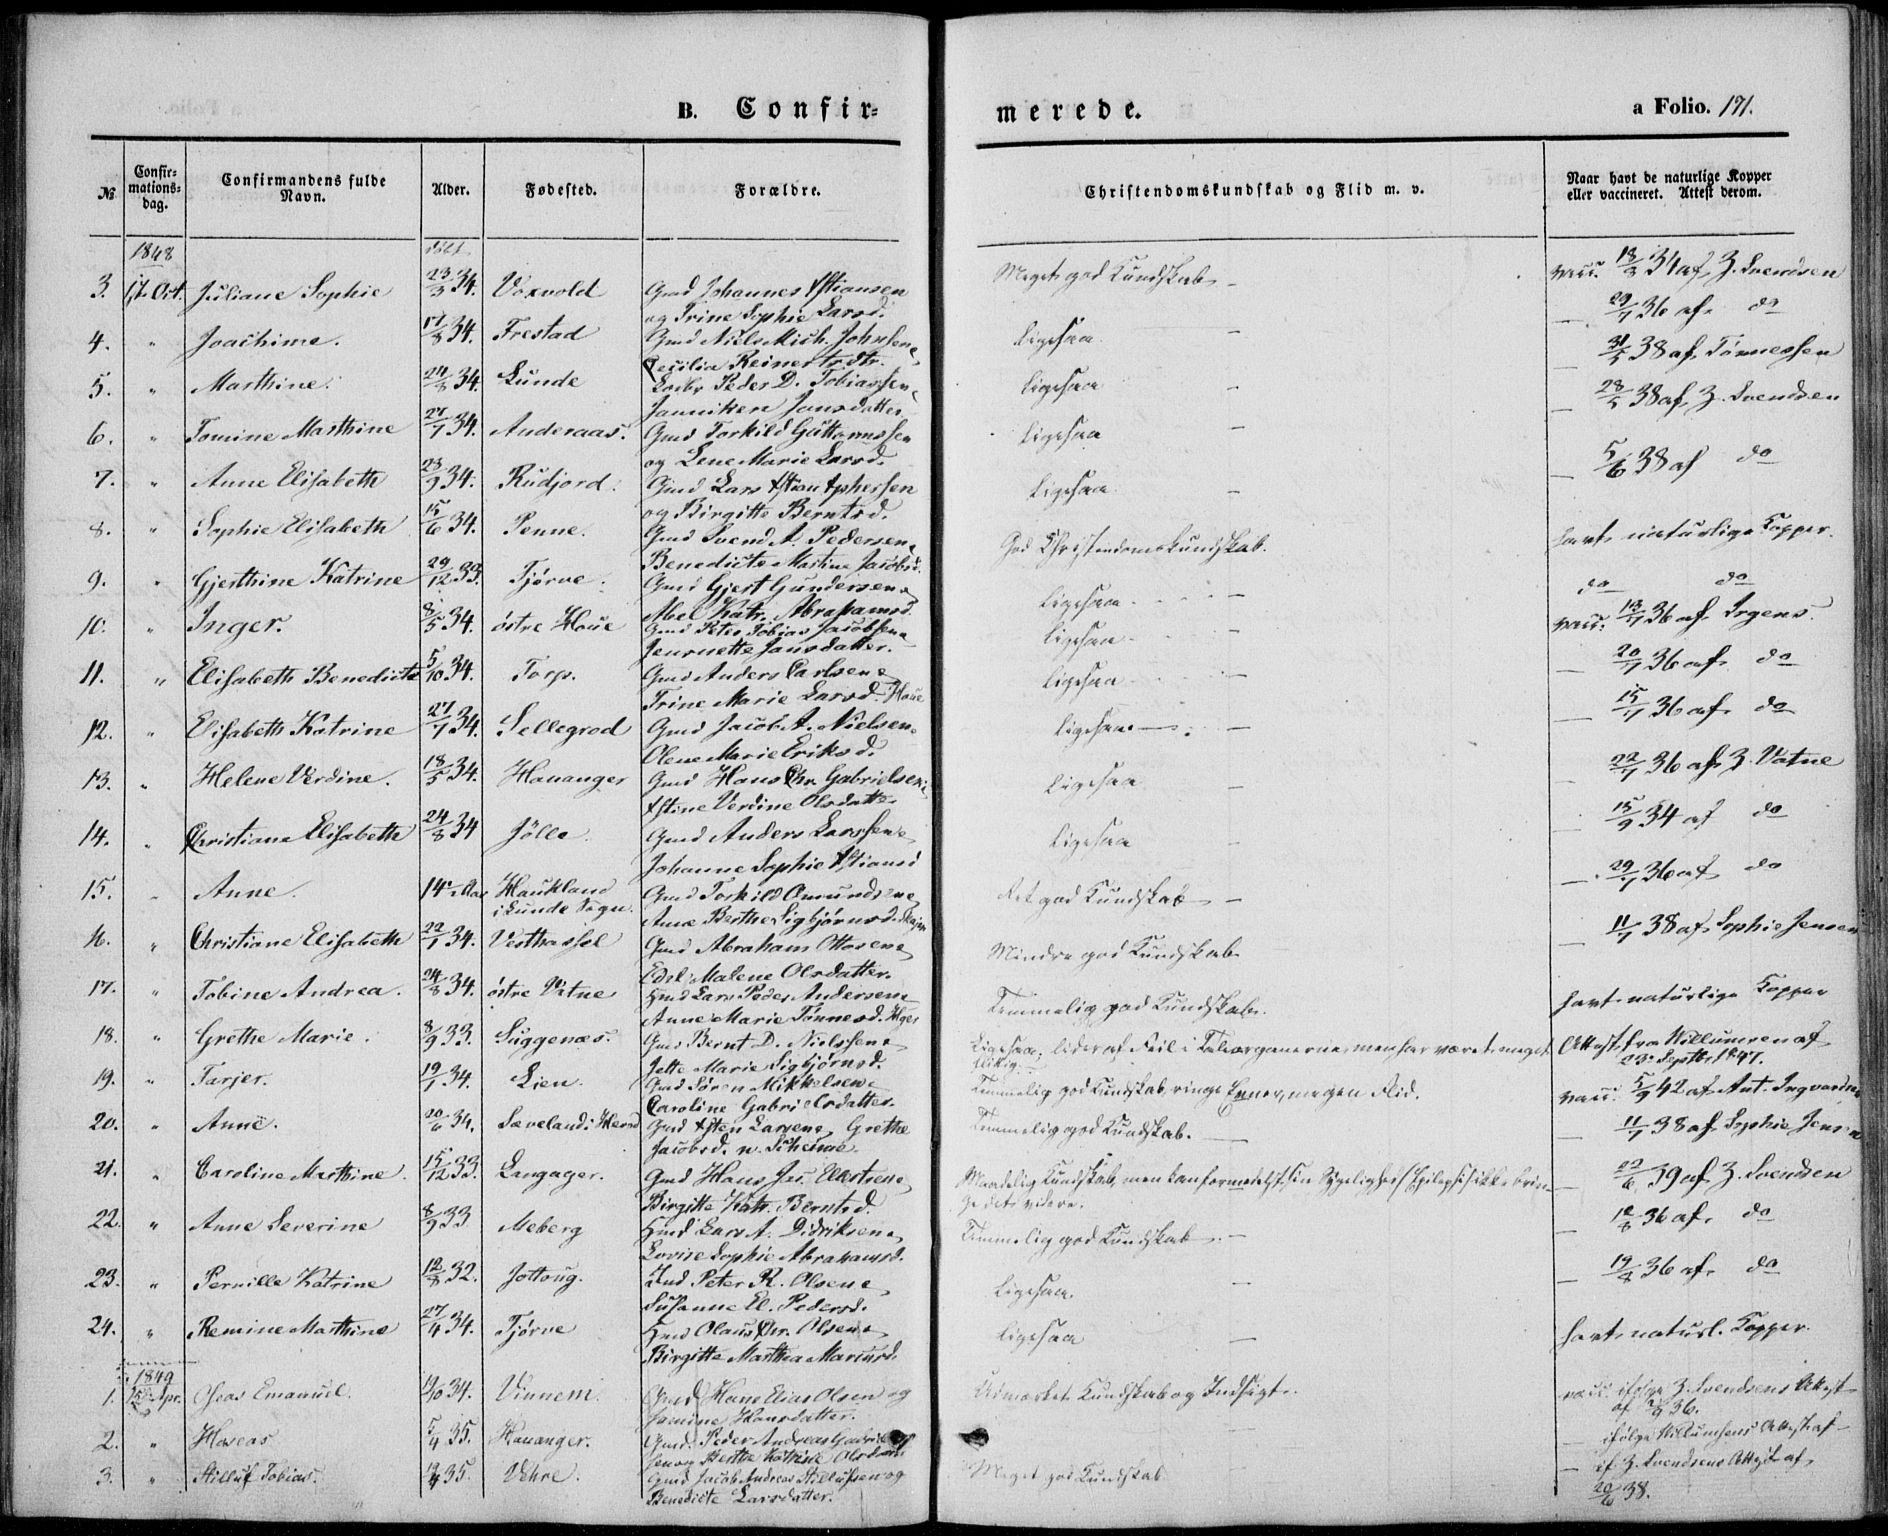 B. Confir=
merede.
a Folio. 191.
№
Confir=mations=dag.
Confirmandens fulde Navn.
Alder.
Fødested.
Forældre.
Christendomskundskab og Flid m. v.
Naar havt de naturlige Kopper eller vaccineret. Attest derom.
1848
3. 1/10 Oct. Juliane Sophie 23/3 34. Voxvold Gmd Johannes Xstiansen og Trine Sophie Larsd. Meget god Kundskab - vacc. 18/3 34 af Z. Svendsen
4. " Joachime. 17/8 34. Frestad Gmd Niels Mich. Johnsen, Cecilia Reinertsdtr. Ligesaa - — 29/7 36 af do
5. " Marthine. 24/8 34. Lunde Peder D. Tobiassen, Janniken Jansdatter Ligesaa - — 31/5 38 af Tønnessen
6. " Tomine Marthine 27/7 34. Anderaas. Gmd Torkild Guttormssen og Lene Marie Larsd. Ligesaa - — 28/5 38 af Z. Svendsen
7. " Anne Elisabeth 23/9 34. Rudjord. Gmd Lars Xstian Xphersen og Birgitte Berntsd. Ligesaa - — 5/6 38 af do
8. " Sophie Elisabeth 15/6 34. Penne. Gmd Svend A. Pedersen, Benedicte Martine Jacobsd. God Christendomskundskab. havt naturlige Kopper.
9. " Gjerthine Katrine 29/12 33. Tjørve. Gmd Gjert Gundersen, Abel Katr. Abrahamsd. Ligesaa - do do
10. " Inger. 8/5 34. østre Houe Gmd Peter Tobias Jacobsen, Jeurnette Jansdatter. Ligesaa - vacc. 13/7 36 af Irgens.
11. " Elisabeth Benedicte 5/10 34. Torp. Gmd Anders Carlsen, Trine Marie Larsd. Houe Ligesaa - — 20/7 36 af do
12. " Elisabeth Katrine 27/7 34. Sellegrod Gmd Jacob A. Nielsen, Olene Marie Eriksd. Ligesaa - — 15/7 36 af do
13. " Helene Verdine. 18/5 34. Hauanger Gmd Hans Chr. Gabrielsen, Xstine Verdine Olsdatter Ligesaa - — 22/7 36 af Z. Vatne
14. " Christiane Elisabeth 24/8 34 Jölle. Gmd Anders Larssen, Johanne Sophie Xstiansd Ligesaa - — 15/9 34 af do
15. " Anne. 14 Aar Haukland i Lunde Sogn. Gmd Torkild Omundsen, Anne Berthe Sigbjørnsd. Ret god Kundskab - — 29/7 36 af do
16. " Christiane Elisabeth 22/1 34. Vesthassel Gmd Abraham Ottosen, Edel Malene Olsdatter. Mindre god Kundskab — 11/7 38 af Sophie Jensen
17. " Tobine Andrea. 24/8 34. østre Vatne Hmd Lars Peder Andersen, Anne Marie Tønnesd. Temmelig god Kundskab. havt naturlige Kopper
18. " Grethe Marie. 8/9 33. Suggenæs. Gmd Bernt D. Nielssen, Jette Marie Sigbjørnsd. Ligesaa; lider af Feil i Taleorganerne, men har været meget flittig. Attest fra Willumsen af 23 Septbr. 1847.
19. " Tarjer. 19/1 34. Lien. Gmd Søren Mikkelsen, Caroline Gabrielsdatter. Temmelig god Kundskab, ringe Evner, megen Flid. vacc. 5/9 42 af Ant. Ingvardsen
20. " Anne. 20/6 34. Sæveland i Herad Gmd Xsten Larsen, Grethe Jacobsd. Temmelig god Kundskab. — 11/7 38 af Sophie Jensen
21. " Caroline Marthine. 15/12 33. Langager. Gmd Hans Jac. Ellertsen, Birgitte Katr. Berntsd. Maadelig Kundskab, men kan formedelst sin Sygelighed (Epilepsi) ikke bringe det videre. — 22/6 39 af Z. Svendsen
22. " Anne Severine 8/9 33. Meberg Hmd Lars A. Didriksen, Lovise Sophie Abrahamsd. Temmelig god Kundskab. - — 12/8 36 af do
23. " Pernille Katrine 12/8 32. Jottoug. Ind Peter R. Olsen, Susanne El. Pedersd. Ligesaa. — 19/8 36 af do
24. " Remine Marthine 27/4 34. Tjørve Hmd Olaus Chr. Olsen, Birgitte Marthea Mariusd. Ligesaa - havt naturl. Kopper.
1849
1. 15 Apr. Oseas Emanuel. 34. Vinnem. Gmd Hans Elias Olsen og Jamine Hansdatter. Udmærket Kundskab og Indsigt. vacc. ifølge Z. Svendsens Attest af 36.
2. " Hoseas 5/4 35. Hauanger. Gmd. Peder Andreas Gabrielsen og Berthe Katrine Olsdatter — ifølge Willumsens Attest af
3. " Stilluf Tobias. 35. Vehre. Gmd Jacob Andreas Stillufsen og Benedicte Larsdatter. Meget god Kundskab — if Z. Svendsens Attest af 20/6 38.